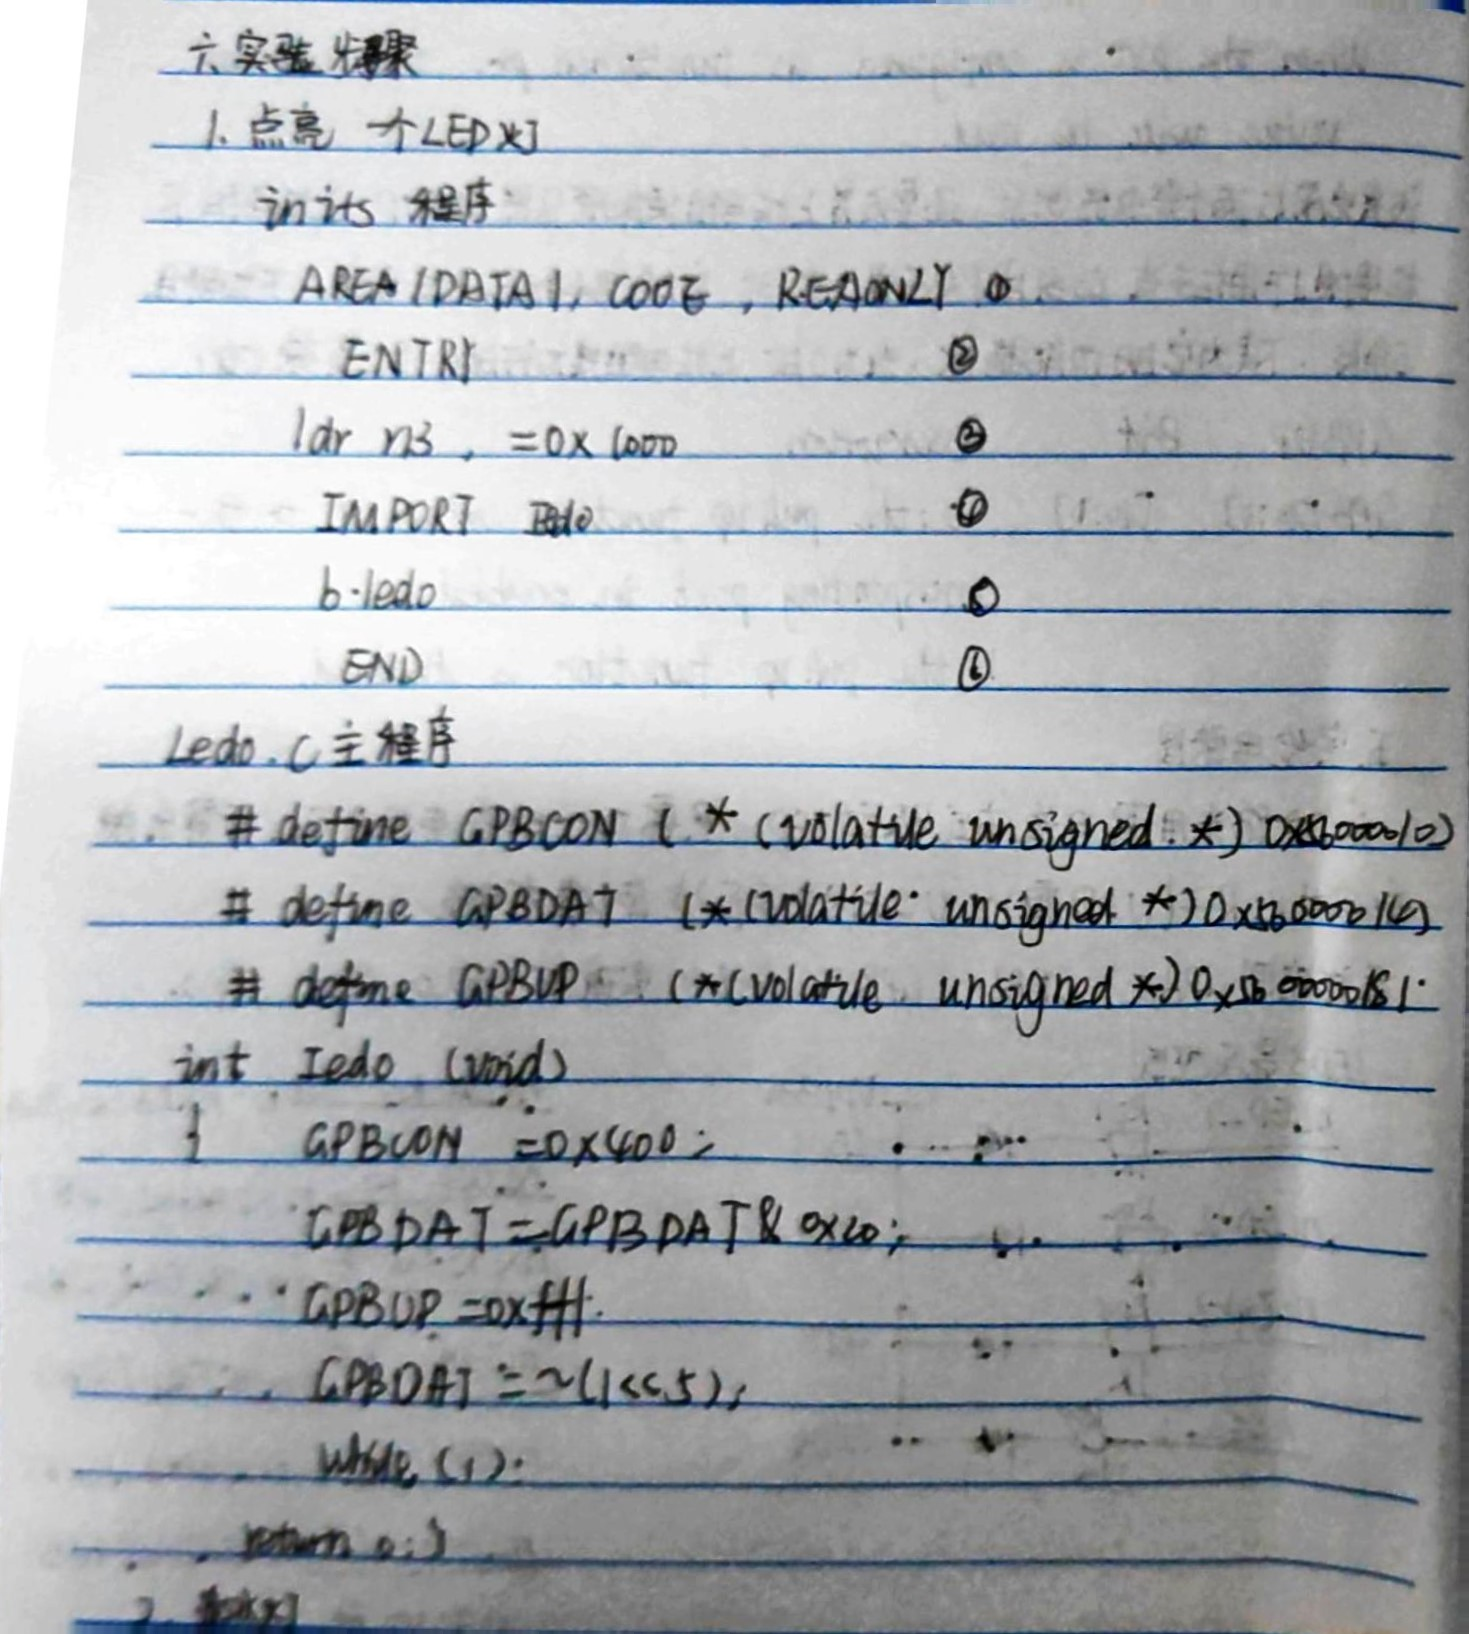 六、实验步骤
1. 点亮一个LED灯
init.s 程序
AREA |DATA|, CODE, READONLY ①
ENTRY ②
ldr r13, =0x1000 ③
IMPORT ledo ④
b ledo ⑤
END ⑥
Ledo.C主程序
# define GPBCON (*(volatile unsigned *)0x56000010)
# define GPBDAT (*(volatile unsigned *)0x56000014)
# define GPBUP (*(volatile unsigned *)
int Iedo (void)
{ GPBCON =0x400;
GPBDAT=GPBDAT&0x20;
GPBUP =0xfff;
GPBDAT =~(1<<5);
while(1);
return 0;}
2.